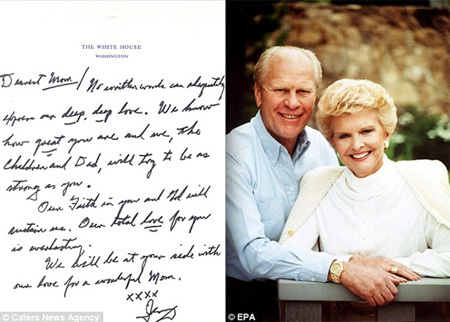 THE WHITE HOUSE
WASHINGTON
Dearest Mom/ No written words can adequately
express our deep, deep love. We know
how great you are and we, the
children and Dad, will try to be as
strong as you.
Our Faith in you and God will
sustain us. Our total love for you
is everlasting.
We will be at your side with
our love for a wonderful Mom.
xxxx
Jerry
© Caters News Agency
© EPA